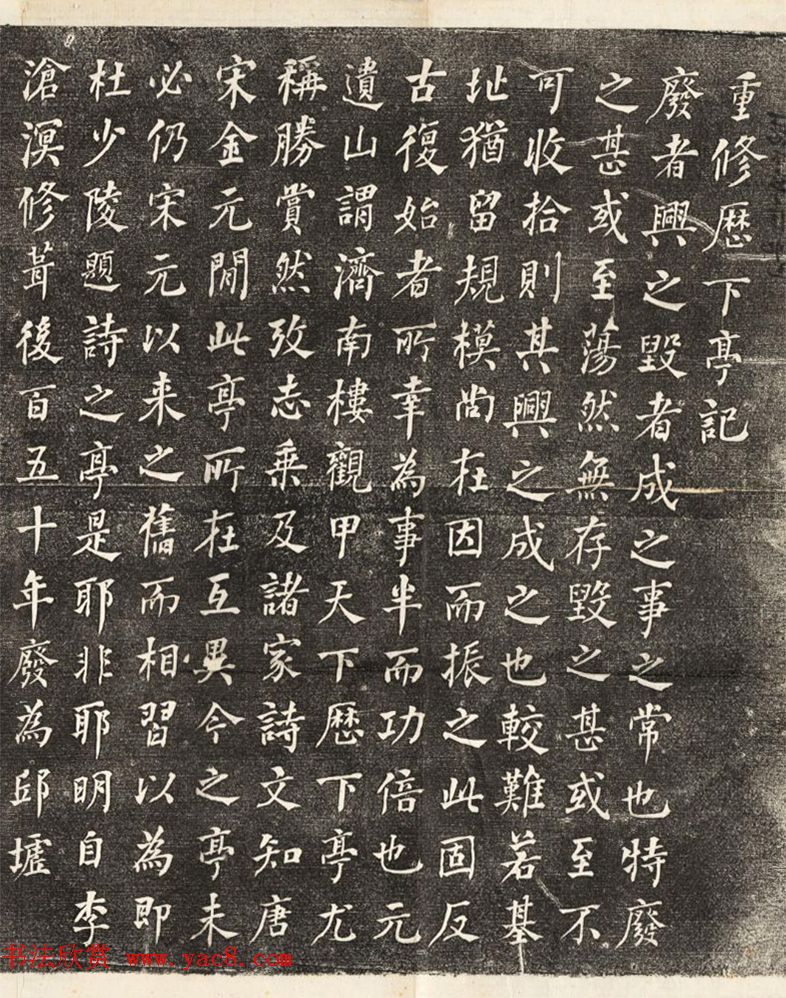 重修歷下亭記
廢者興之毀者成之事之常也特廢
之甚或至蕩然無存毀之甚或至不
可收拾則其興之成之也較難若基
址猶留規模尚在因而振之此固反
古復始者所幸為事半而功倍也元
遺山謂濟南樓觀甲天下歷下亭尤
稱勝賞然攷志乘及諸家詩文知唐
宋金元閒此亭所在互異今之亭未
必仍宋元以来之舊而相習以為即
杜少陵題詩之亭是耶非耶明自李
滄溟修葺後百五十年廢為邱墟
书法欣赏 www.yac8.com